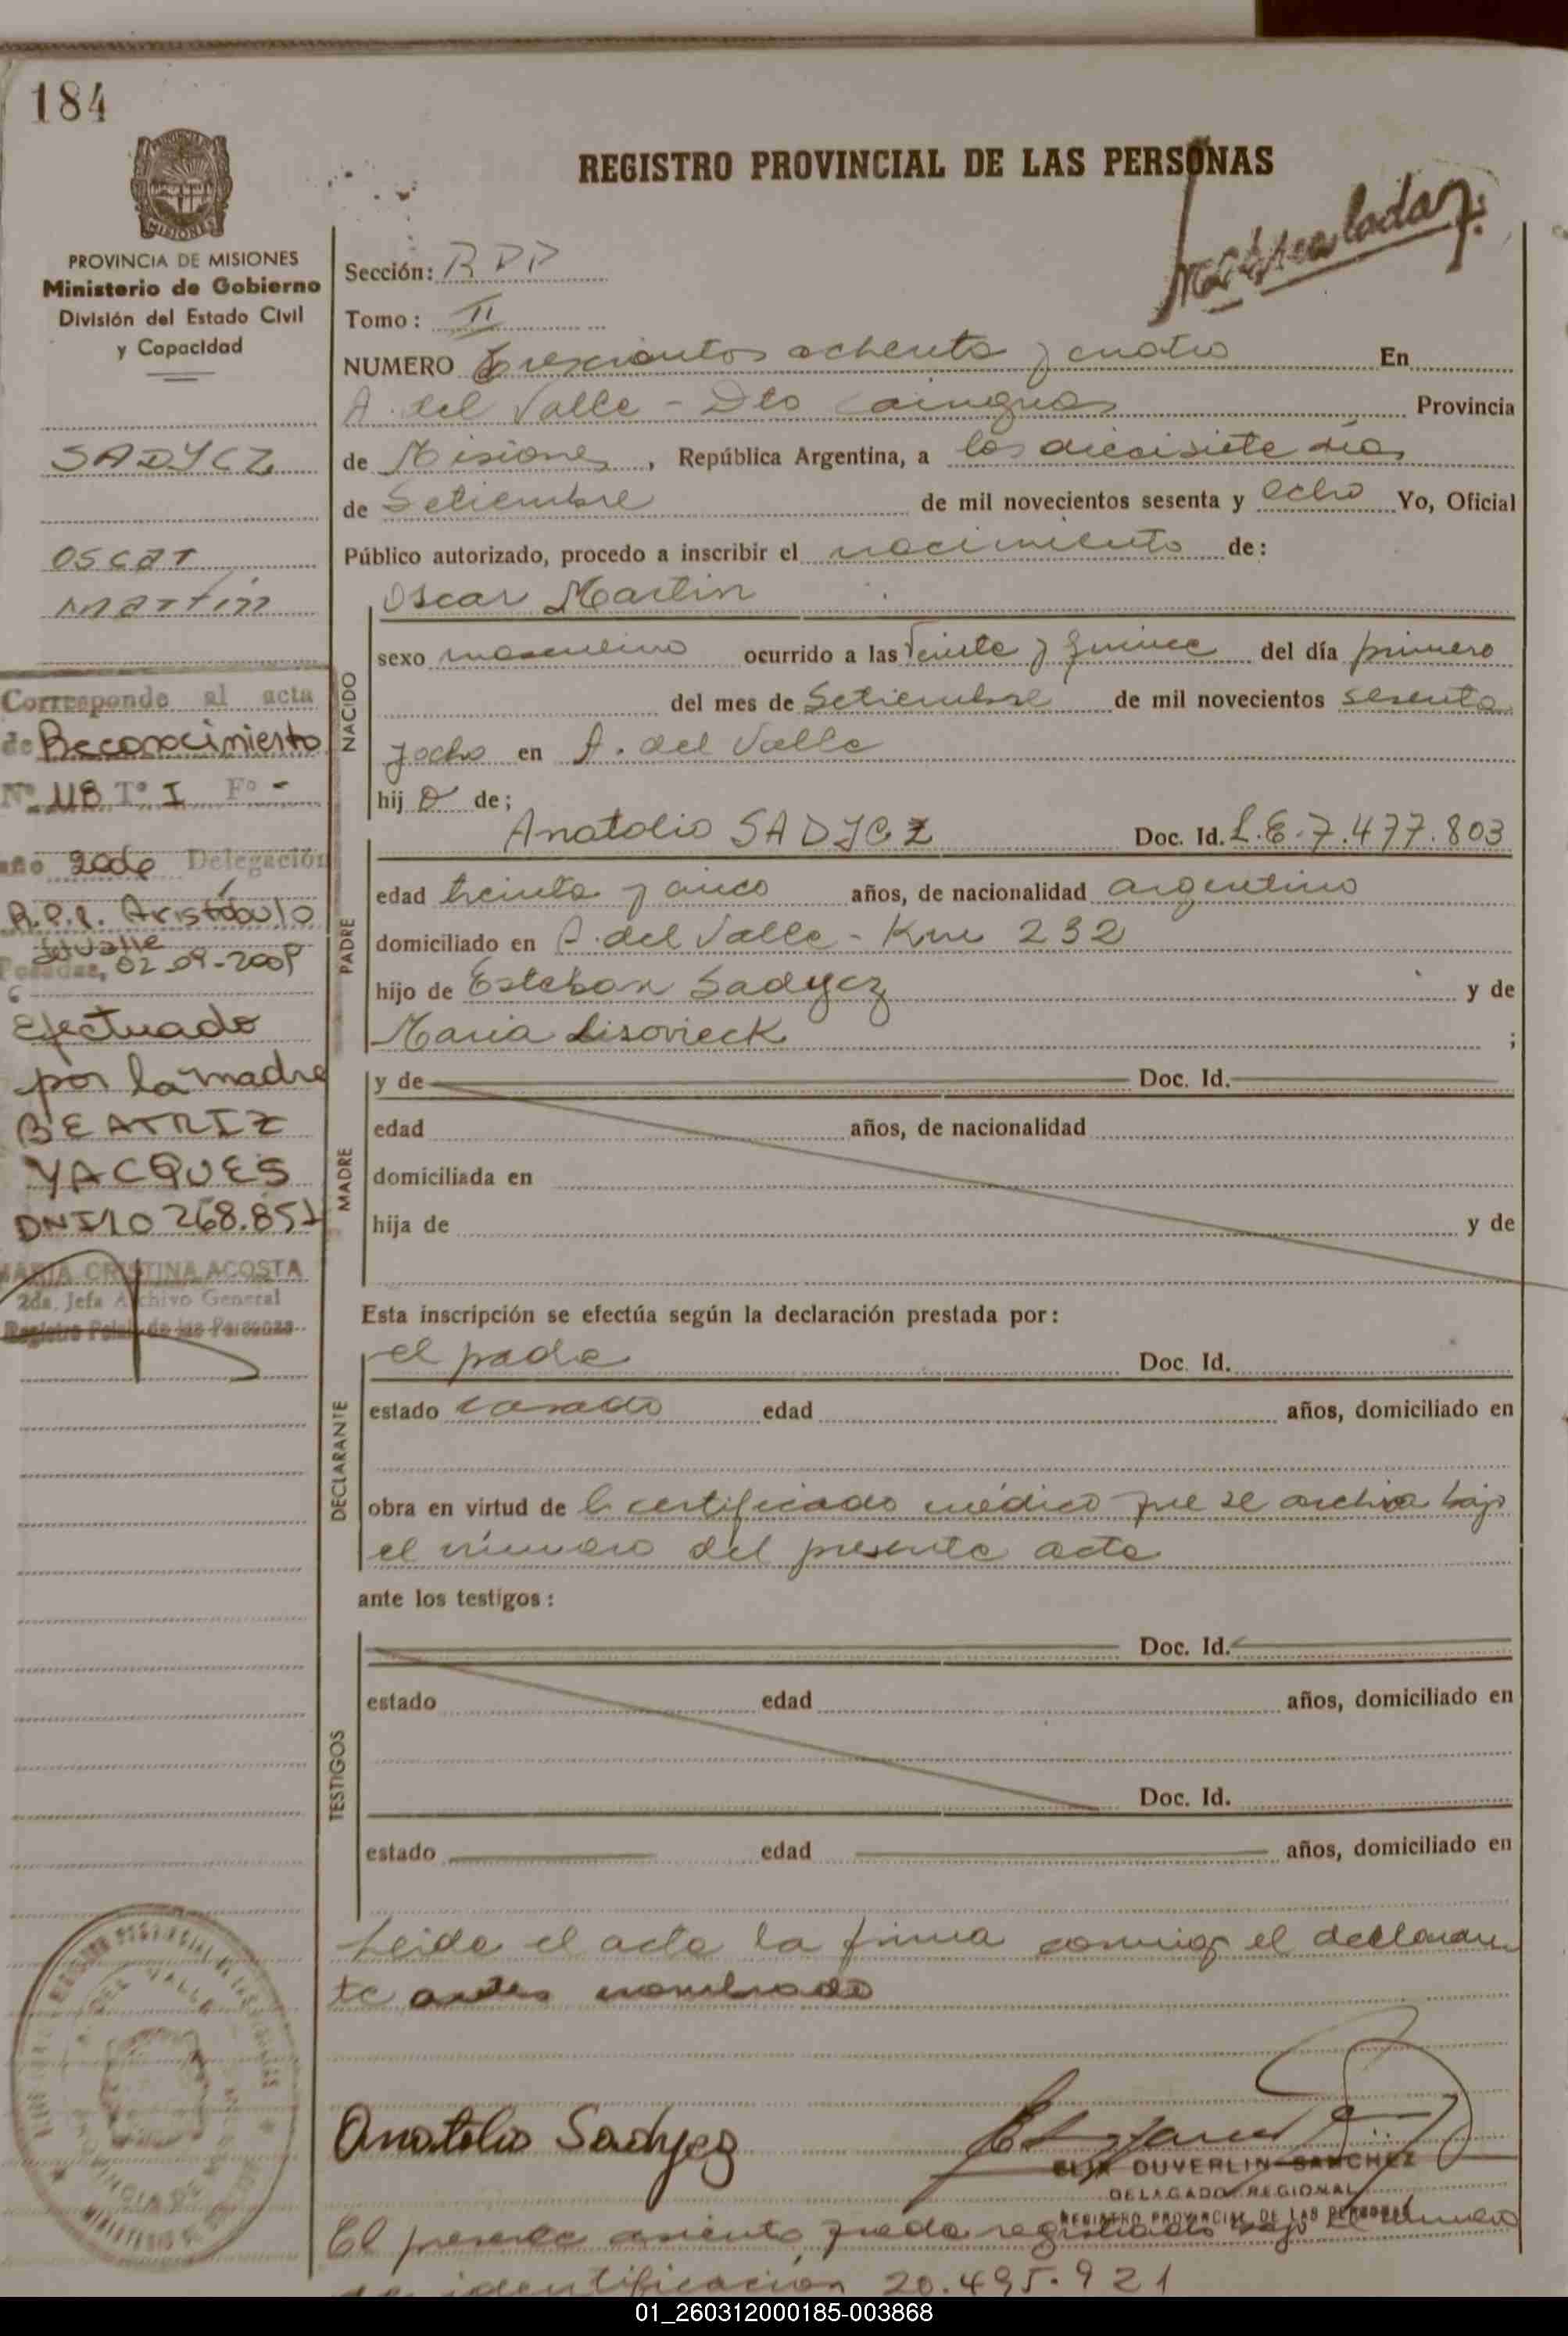 184
REGISTRO PROVINCIAL DE LAS PERSONAS
PROVINCIA DE MISIONES
Ministerio de Gobierno
División del Estado Civil
y Capacidad
SADYCZ
Oscar
Martín
Corresponde al acta
de Reconocimiento
Nº 118 Tº I Fº -
año Delegación
R.P.P. Aristóbulo
del Valle
Posadas, 02-09-200
Efectuado
por la madre
BEATRIZ
YACQUES
DNI 10 268.851
MARIA CRISTINA ACOSTA
2da. Jefa Archivo General
Registro Pcial. de las Personas
Sección:
Tomo: II
NUMERO Trescientos ochenta y cuatro En
A. del Valle - Dto Cainguas Provincia
de Misiones, República Argentina, a los diecisiete días
de Setiembre de mil novecientos sesenta y ocho Yo, Oficial
Público autorizado, procedo a inscribir el nacimiento de:
Oscar Martin
NACIDO
sexo masculino ocurrido a las veinte y quince del día primero
del mes de Setiembre de mil novecientos sesenta
y ocho en A. del Valle
hij o de;
PADRE
Anatolio SADYCZ Doc. Id. L.E. 7.477.803
edad treinta y cinco años, de nacionalidad argentino
domiciliado en A. del Valle - Km 232
hijo de Esteban Sadycz y de
Maria Lisovieck ;
MADRE
y de Doc. Id.
edad años, de nacionalidad
domiciliada en
hija de y de
Esta inscripción se efectúa según la declaración prestada por:
DECLARANTE
el padre Doc. Id.
estado casado edad años, domiciliado en
obra en virtud de el certificado médico que se archiva bajo
el número del presente acta
ante los testigos:
TESTIGOS
Doc. Id.
estado edad años, domiciliado en
Doc. Id.
estado edad años, domiciliado en
Leida el acta la firma conmigo el declaran
te antes nombrado
Anatolio Sadycz
ELIX DUVERLIN SANCHEZ
DELEGADO REGIONAL
REGISTRO PROVINCIAL DE LAS PERSONAS
El presente asiento queda registrado bajo el número
de identificación 20.495.921
01_260312000185-003868